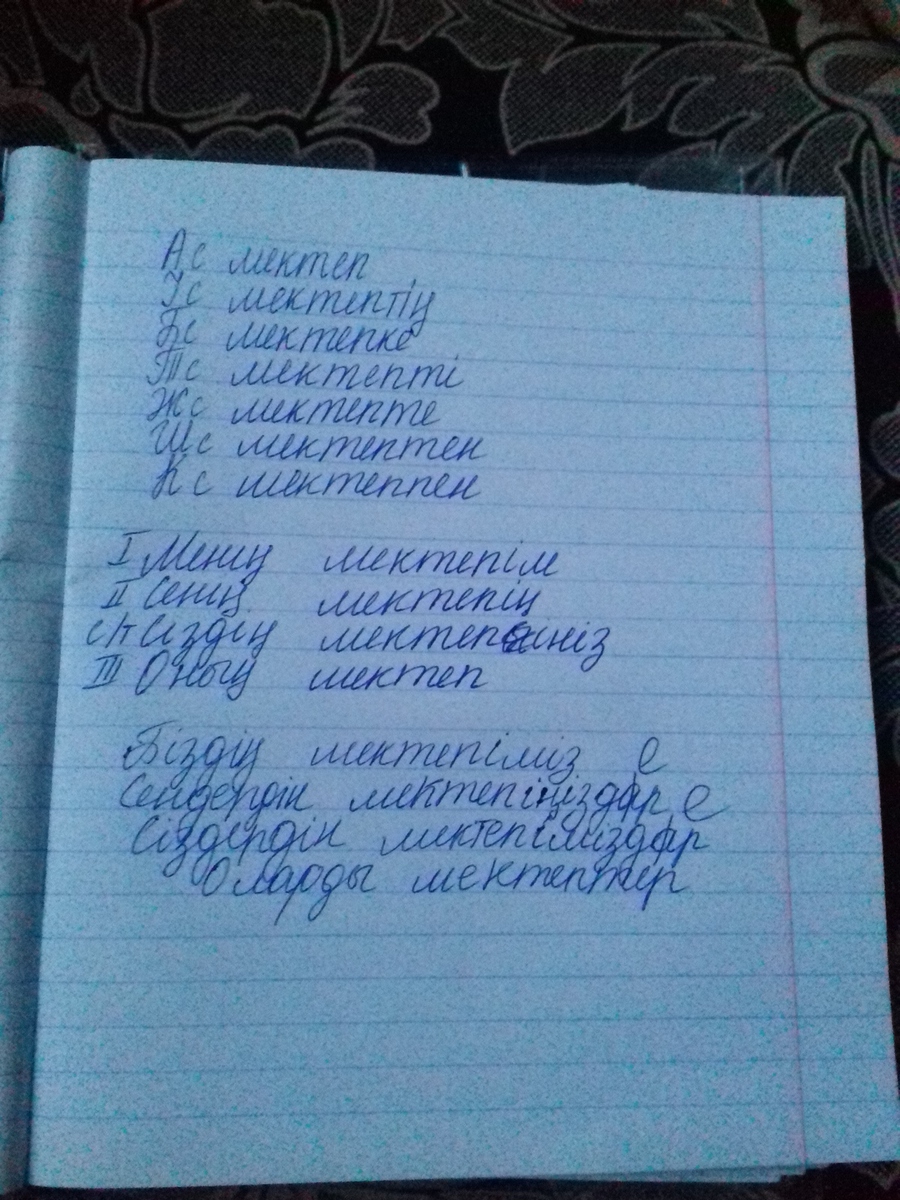 Ас мектеп
Іс мектептің
Бс мектепке
Тс мектепті
Жс мектепте
Шс мектептен
Кс мектеппен
I Менің мектепім
II Сенің мектепің
с/т Сіздің мектепініз
III Оның мектеп
Біздің мектепіміз е
Сендердін мектепіңіздар е
Сіздердін мектепіміздар
Оларды мектептер